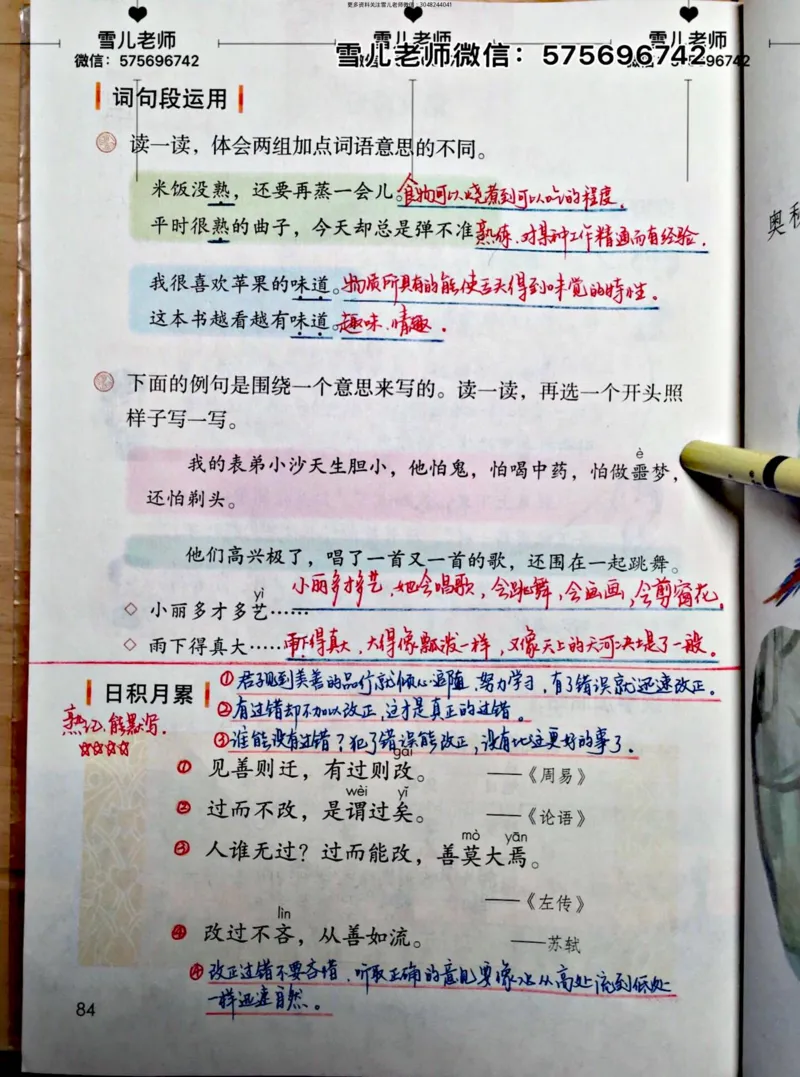 更多资料关注雪儿老师微信：3048244041
雪儿老师
微信：575696742
雪儿老师
雪儿老师微信：575696742
雪儿老师
词句段运用
读一读，体会两组加点词语意思的不同。
米饭没熟，还要再蒸一会儿。食物可以烧煮到可以吃的程度。
平时很熟的曲子，今天却总是弹不准。熟练、对某种工作精通而有经验。
我很喜欢苹果的味道。物质所具有的能使舌头得到味觉的特性。
这本书越看越有味道。趣味、情趣。
下面的例句是围绕一个意思来写的。读一读，再选一个开头照
样子写一写。
è
我的表弟小沙天生胆小，他怕鬼，怕喝中药，怕做噩梦，
还怕剃头。
他们高兴极了，唱了一首又一首的歌，还围在一起跳舞。
小丽多才多艺，她会唱歌，会跳舞，会画画，会剪窗花。
yì
◇ 小丽多才多艺……
◇ 雨下得真大……雨下得真大，大得像瓢泼一样，又像天上的天河决堤了一般。
日积月累
①君子见到美善的品行就倾心追随，努力学习，有了错误就迅速改正。
熟记，能默写。
☆☆☆☆
②有过错却不加以改正，这才是真正的过错。
③谁能没有过错？犯了错误能改正，没有比这更好的事了。
gǎi
① 见善则迁，有过则改。 ——《周易》
wèi yǐ
② 过而不改，是谓过矣。 ——《论语》
mò yān
③ 人谁无过？过而能改，善莫大焉。
——《左传》
lìn
④ 改过不吝，从善如流。 ——苏轼
④改正过错不要吝惜，听取正确的意见要像水从高处流到低处
一样迅速自然。
84